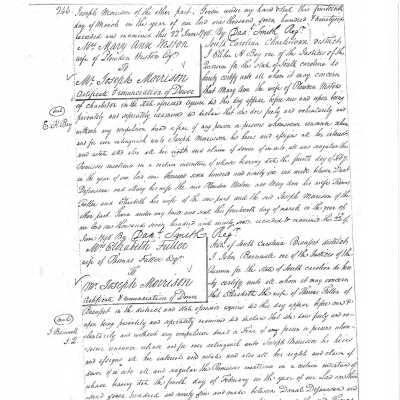 244 Joseph Morrison of the other part. Given under my hand this fourteenth
day of March in the year of our Lord one thousand seven hundred & ninety six
recorded and examined this 22d June 1796 By Danl Smith Regr.
Mrs Mary Ann Wston
wife of Plowden Weston Esqr
To
Mr Joseph Morrison
Certificate & renunciation of Dower
South Carolina Charleston district
I Elihu H Bay one of the Justices of the
for the State of South carolina do
certify unto all whom it may concern
that Mary Ann the wife of Plowden Weston
of charleston in the state aforesaid appeared this day before me and upon being
privately and separately examined did declare that she does freely and voluntarily and
without any compulsion dread or fear of any person or persons whomsoever renounce release
and for ever relinquish unto Joseph Morrison his heirs and assigns all her interest
and estate and also all her right and claim of dower of in or to all and singular the
Premises mentioned in a certain of release bearing date the fourth day of
in the year of our Lord one thousand seven hundred and ninety and made between Daniel
and Mary his wife the said Plowden Weston and Mary Ann his wife Thomas
Fuller and Elizabeth his wife of the one part and the said Joseph Morrison of the
other part. Given under my hand and seal this fourteenth day of March in the year of
our Lord one thousand seven hundred and ninety recorded & examined this 22d of
June 1796 By Danl Smith Regr.
seal
E. H. Bay
Mrs Elizabeth Fuller
wife of Thomas Fuller Esqr
To
Mr Joseph Morrison
Certificate & renunciation of Dower
State of South Carolina Beaufort district
I John Barnwell one of the Justices of the
for the state of South carolina do here
by certify unto all whom it may concern
that Elizabeth the wife of Thomas Fuller of
Beaufort in the district and state aforesaid appeared this day before me &
upon being privately and separately examined did declare that she does freely and vo
luntarily and without any compulsion dread or Fear of any person or persons whom
soever renounce release and for ever relinquish unto Joseph Morrison his heirs
and assigns all her interest and estate and also all her right and claim of
dower of in or to all and singular the Premises mentioned in a certain
release bearing date the fourth day of February in the year of our Lord one thou
sand seven hundred and ninety and made between Daniel and
seal
J Barnwell